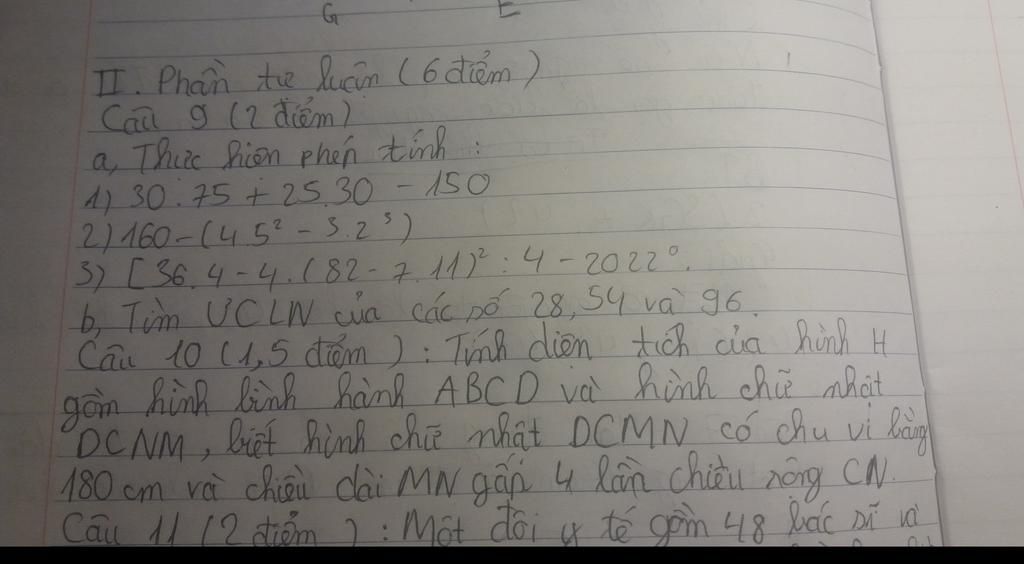 G E
II. Phần tự luận (6 điểm)
Câu 9 (2 điểm)
a, Thực hiện phép tính :
1) 30.75 + 25.30 - 150
2) 160 - (4 5² - 3.2³)
3) [36.4 - 4.(82 - 7.11)² : 4 - 2022⁰.
b, Tìm ƯCLN của các số 28, 54 và 96.
Câu 10 (1,5 điểm) : Tính diện tích của hình H
gồm hình bình hành ABCD và hình chữ nhật
DCNM, biết hình chữ nhật DCMN có chu vi bằng
180 cm và chiều dài MN gấp 4 lần chiều rộng CN.
Câu 11 (2 điểm) : Một đội y tế gồm 48 bác sĩ và